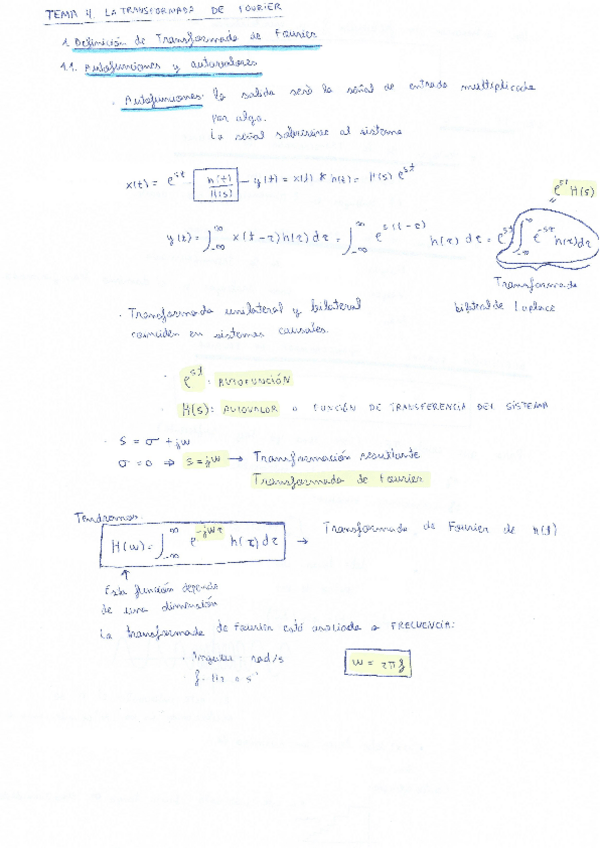 TEMA 4. LA TRANSFORMADA DE FOURIER
1. Definición de Transformada de Fourier
1.1. Autofunciones y autovalores
· Autofunciones: la salida será la señal de entrada multiplicada
por algo.
La señal sobrevive al sistema
x(t) = e^{st} - [h(t) / H(s)] - y(t) = x(t) * h(t) = H(s) e^{st}
e^{st} H(s)
y(t) = ∫_{-∞}^{∞} x(t-τ) h(τ) dτ = ∫_{-∞}^{∞} e^{s(t-τ)} h(τ) dτ = e^{st} ∫_{-∞}^{∞} e^{-sτ} h(τ) dτ
Transformada
bilateral de Laplace
· Transformada unilateral y bilateral
coinciden en sistemas causales.
· e^{st}: AUTOFUNCIÓN
· H(s): AUTOVALOR o FUNCIÓN DE TRANSFERENCIA DEL SISTEMA
· s = σ + jw
σ = 0 ⇒ s = jw → Transformación resultante
Transformada de Fourier
Tendremos:
H(w) = ∫_{-∞}^{∞} e^{-jwτ} h(τ) dτ → Transformada de Fourier de h(t)
↑
Esta función depende
de una dimensión
La transformada de Fourier está asociada a FRECUENCIA:
· rad/s
· f: Hz o s⁻¹
w = 2πf